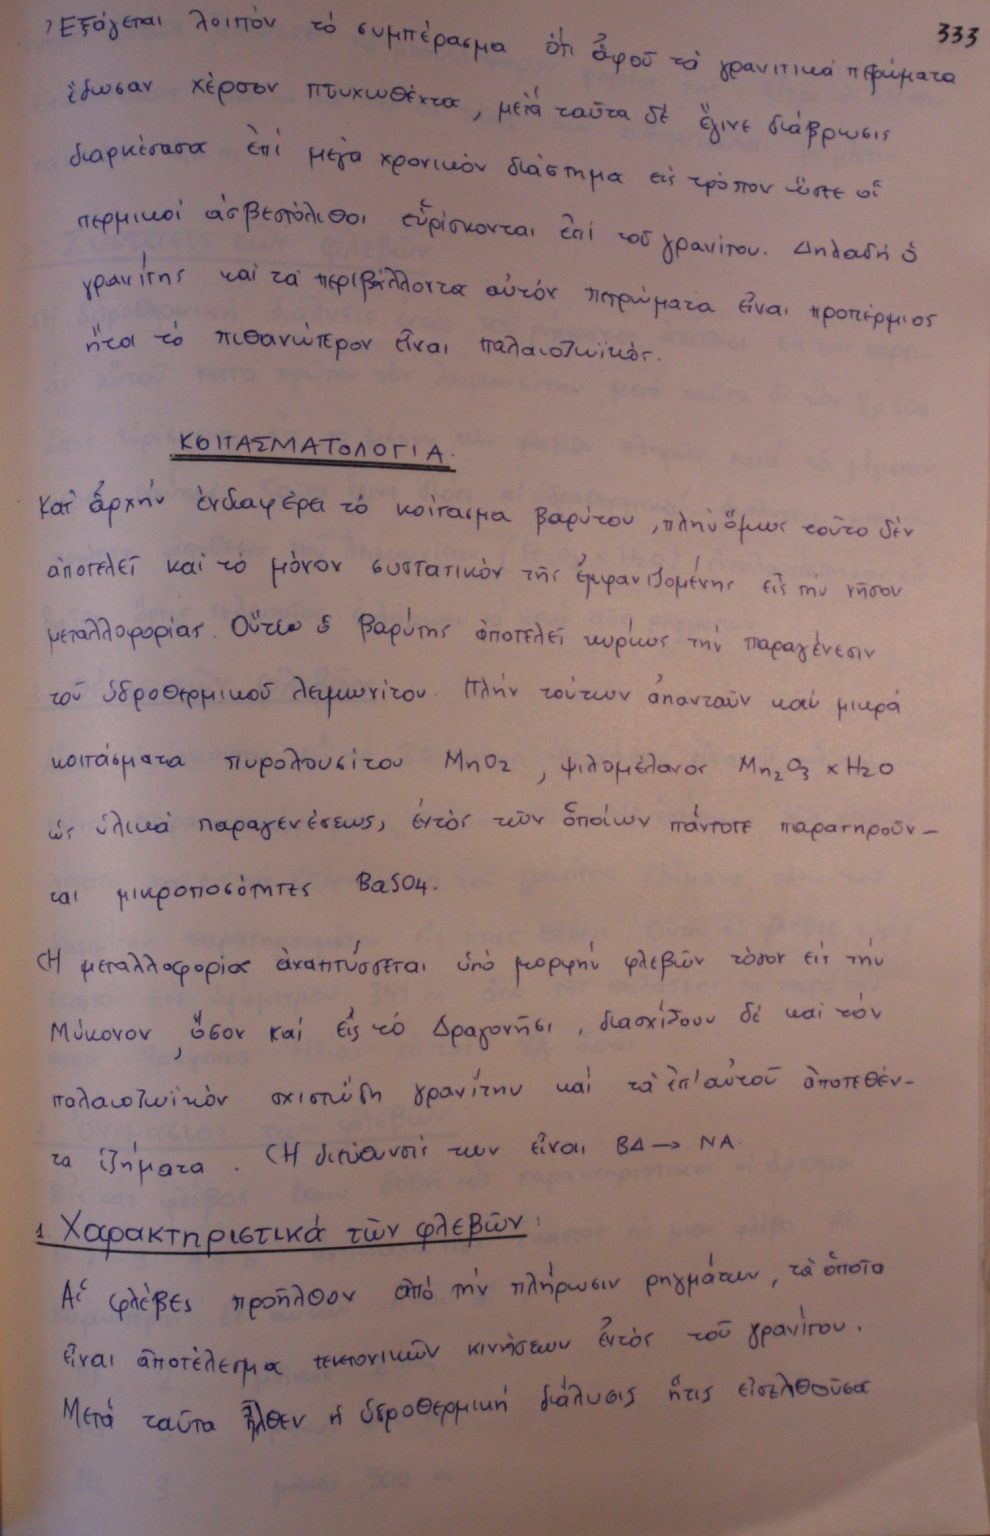 333
Ἐξάγεται λοιπόν τό συμπέρασμα ὅτι ἀφοῦ τά γρανιτικά πετρώματα
ἔδωσαν χέρσον πτυχωθέντα, μετά ταῦτα δέ ἔγινε διάβρωσις
διαρκέσασα ἐπί μέγα χρονικόν διάστημα εἰς τρόπον ὥστε οἱ
περμικοί ἀσβεστόλιθοι εὑρίσκονται ἐπί τοῦ γρανίτου. Δηλαδή ὁ
γρανίτης καί τά περιβάλλοντα αὐτόν πετρώματα εἶναι προπέρμιος
ἤτοι τό πιθανώτερον εἶναι παλαιοζωϊκός.
ΚΟΙΤΑΣΜΑΤΟΛΟΓΙΑ.
Κατ' ἀρχήν ἐνδιαφέρει τό κοίτασμα βαρύτου, πλήν ὅμως τοῦτο δέν
ἀποτελεῖ καί τό μόνον συστατικόν τῆς ἐμφανιζομένης εἰς τήν νῆσον
μεταλλοφορίας. Οὕτω ὁ βαρύτης ἀποτελεῖ κυρίως τήν παραγένεσιν
τοῦ ὑδροθερμικοῦ λειμωνίτου. Πλήν τούτων ἀπαντοῦν καί μικρά
κοιτάσματα πυρολουσίτου MnO2, ψιλομέλανος Mn2O3 xH2O
ὡς ὑλικά παραγενέσεως, ἐντός τῶν ὁποίων πάντοτε παρατηροῦν-
ται μικροποσότητες BaSO4.
Ἡ μεταλλοφορία ἀναπτύσσεται ὑπό μορφήν φλεβῶν τόσον εἰς τήν
Μύκονον, ὅσον καί εἰς τό Δραγονῆσι, διασχίζουν δέ καί τόν
παλαιοζωϊκόν σχιστώδη γρανίτην καί τά ἐπ' αὐτοῦ ἀποτεθέν-
τα ἰζήματα. Ἡ διεύθυνσίς των εἶναι ΒΔ → ΝΑ.
1. Χαρακτηριστικά τῶν φλεβῶν:
Αἱ φλέβες προῆλθον ἀπό τήν πλήρωσιν ρηγμάτων, τά ὁποῖα
εἶναι ἀποτέλεσμα τεκτονικῶν κινήσεων ἐντός τοῦ γρανίτου.
Μετά ταῦτα ἦλθεν ἡ ὑδροθερμική διάλυσις ἥτις εἰσελθοῦσα